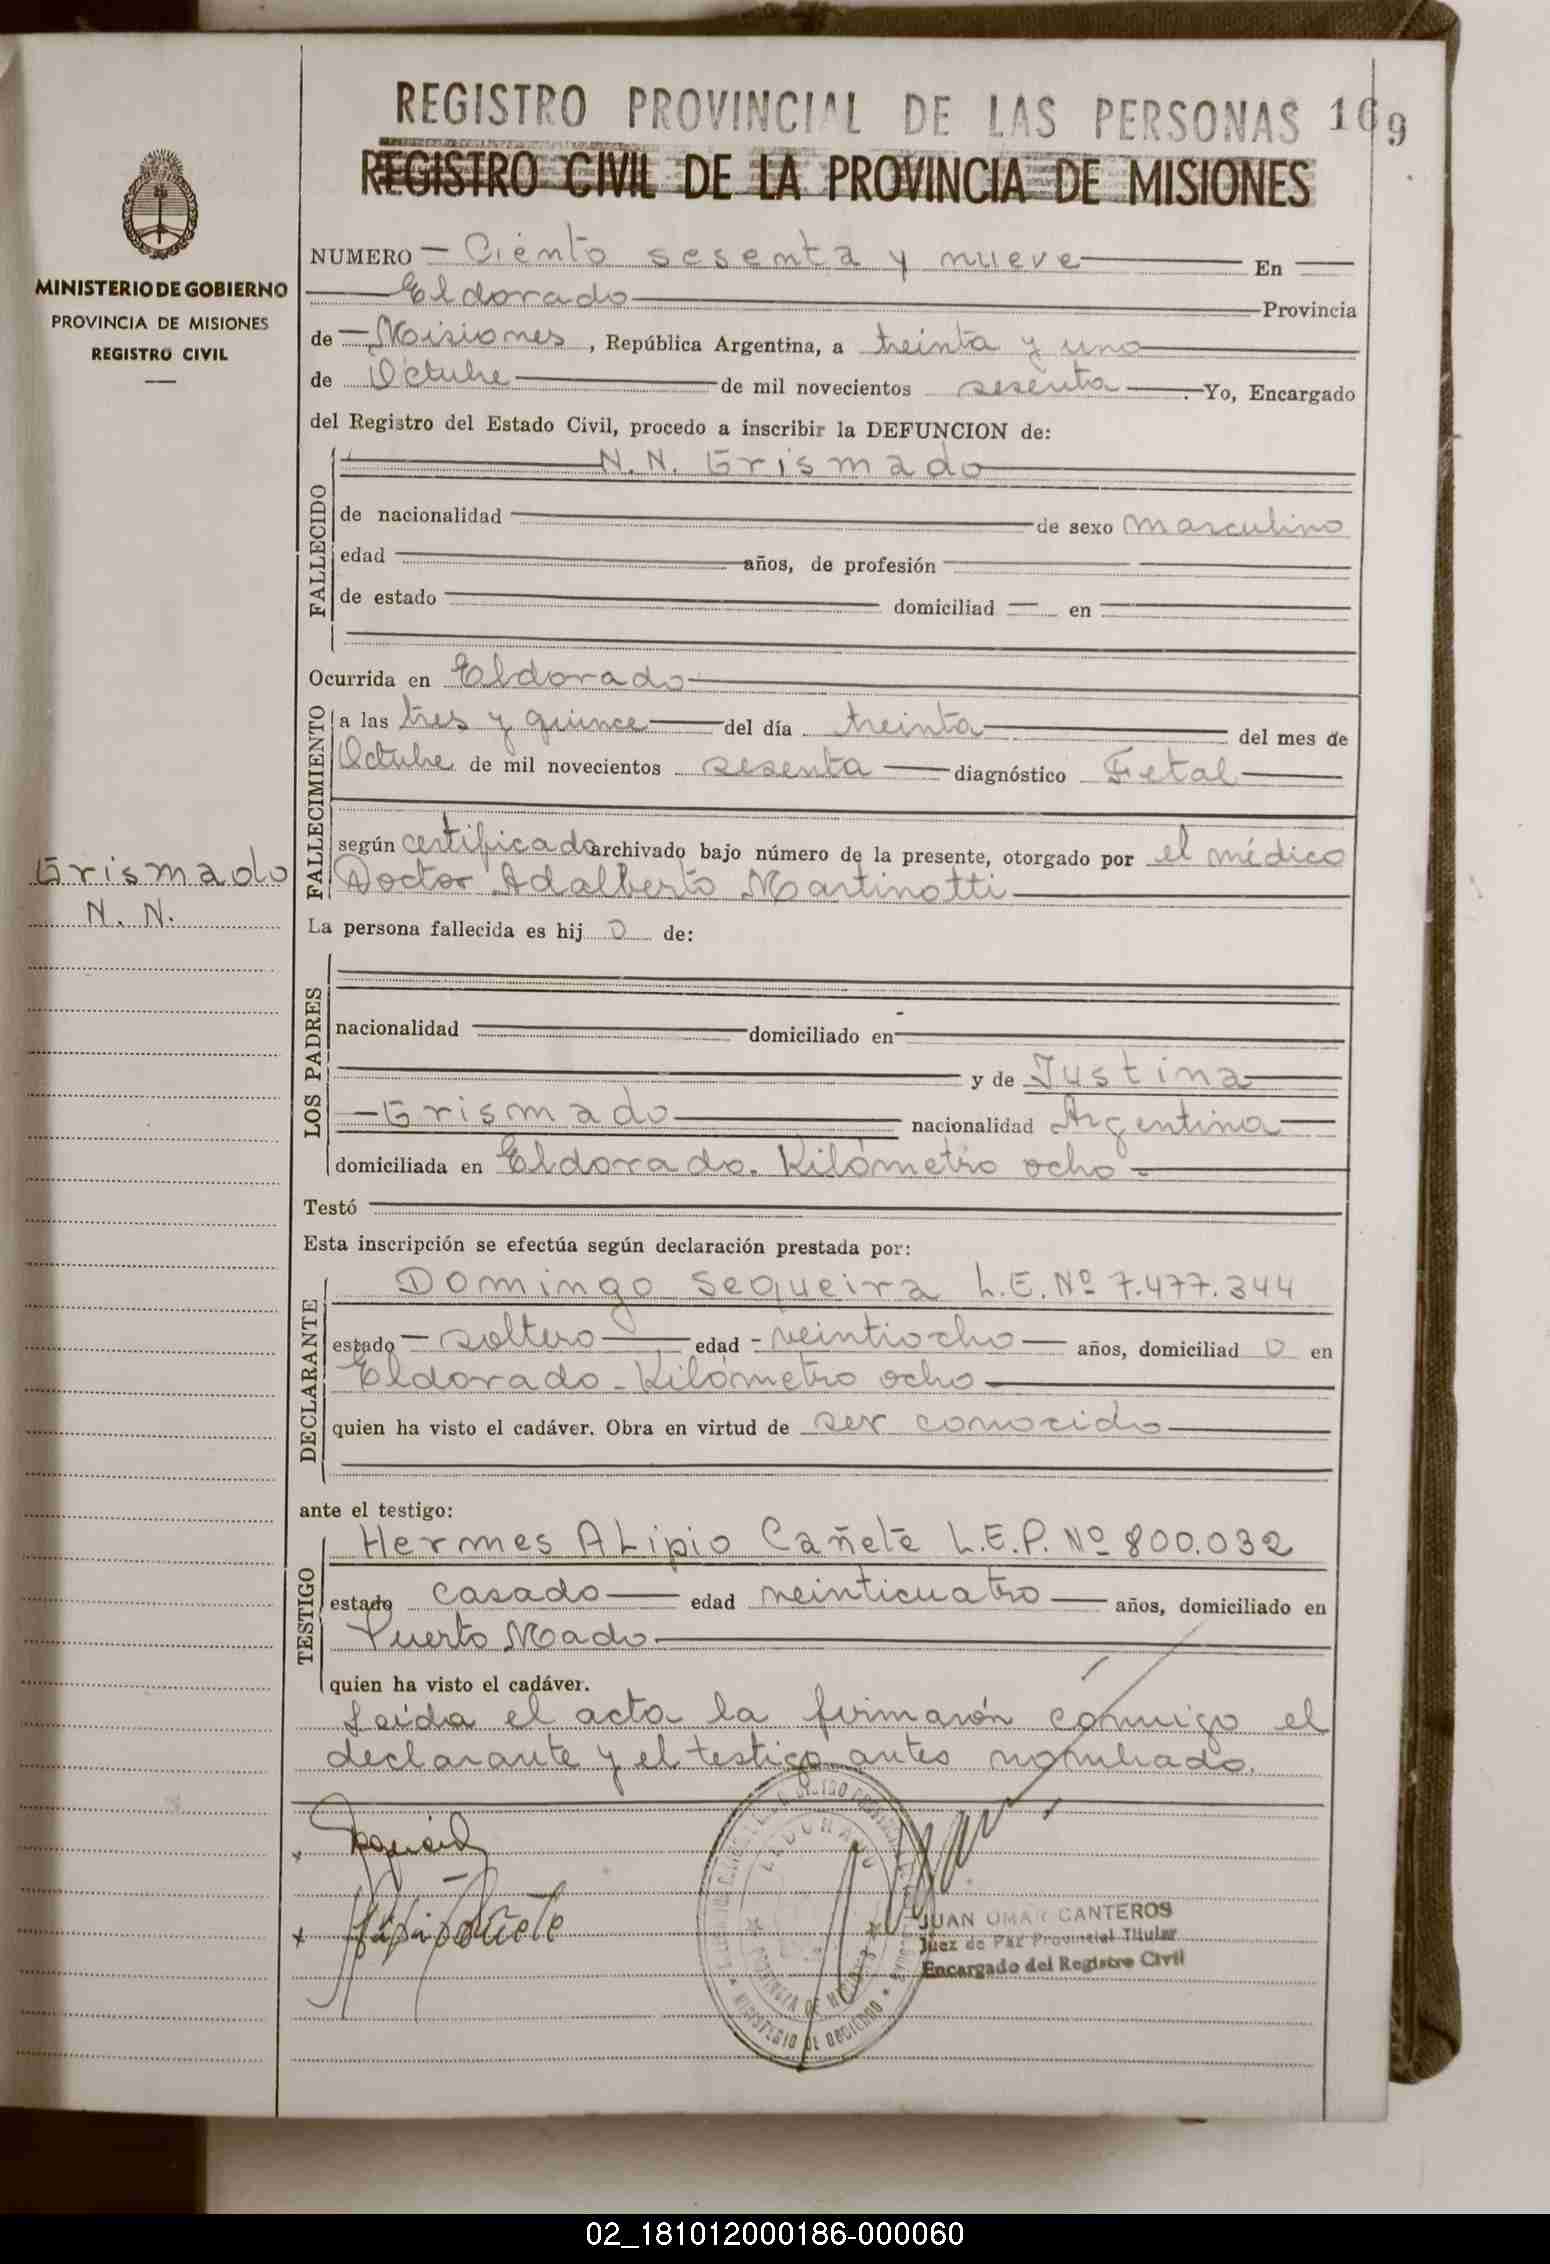 REGISTRO PROVINCIAL DE LAS PERSONAS 169
REGISTRO CIVIL DE LA PROVINCIA DE MISIONES
MINISTERIO DE GOBIERNO
PROVINCIA DE MISIONES
REGISTRO CIVIL
Grismado
N. N.
NUMERO Ciento sesenta y nueve En
Eldorado Provincia
de Misiones, República Argentina, a treinta y uno
de Octubre de mil novecientos sesenta. Yo, Encargado
del Registro del Estado Civil, procedo a inscribir la DEFUNCION de:
FALLECIDO
N. N. Grismado
de nacionalidad de sexo masculino
edad años, de profesión
de estado domiciliad en
Ocurrida en Eldorado
FALLECIMIENTO
a las tres y quince del día treinta del mes de
Octubre de mil novecientos sesenta diagnóstico Fetal
según certificado archivado bajo número de la presente, otorgado por el médico
Doctor Adalberto Martinotti
La persona fallecida es hij o de:
LOS PADRES
nacionalidad domiciliado en
y de Justina
Grismado nacionalidad Argentina
domiciliada en Eldorado. Kilómetro ocho.
Testó
Esta inscripción se efectúa según declaración prestada por:
DECLARANTE
Domingo Sequeira L.E. Nº 7.477.344
estado soltero edad veintiocho años, domiciliad o en
Eldorado - Kilómetro ocho
quien ha visto el cadáver. Obra en virtud de ser conocido
ante el testigo:
TESTIGO
Hermes ALipio Cañete L.E.P. Nº 800.032
estado casado edad veinticuatro años, domiciliado en
Puerto Mado.
quien ha visto el cadáver.
Leída el acta la firmarón conmigo el
declarante y el testigo antes nombrado.
ELDORADO
MINISTERIO DE GOBIERNO
JUAN OMAR CANTEROS
Juez de Paz Provincial Titular
Encargado del Registro Civil
02_181012000186-000060